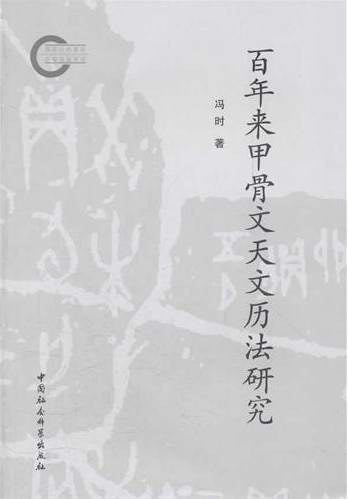 百年来甲骨文天文历法研究
冯时 著
中国社会科学出版社